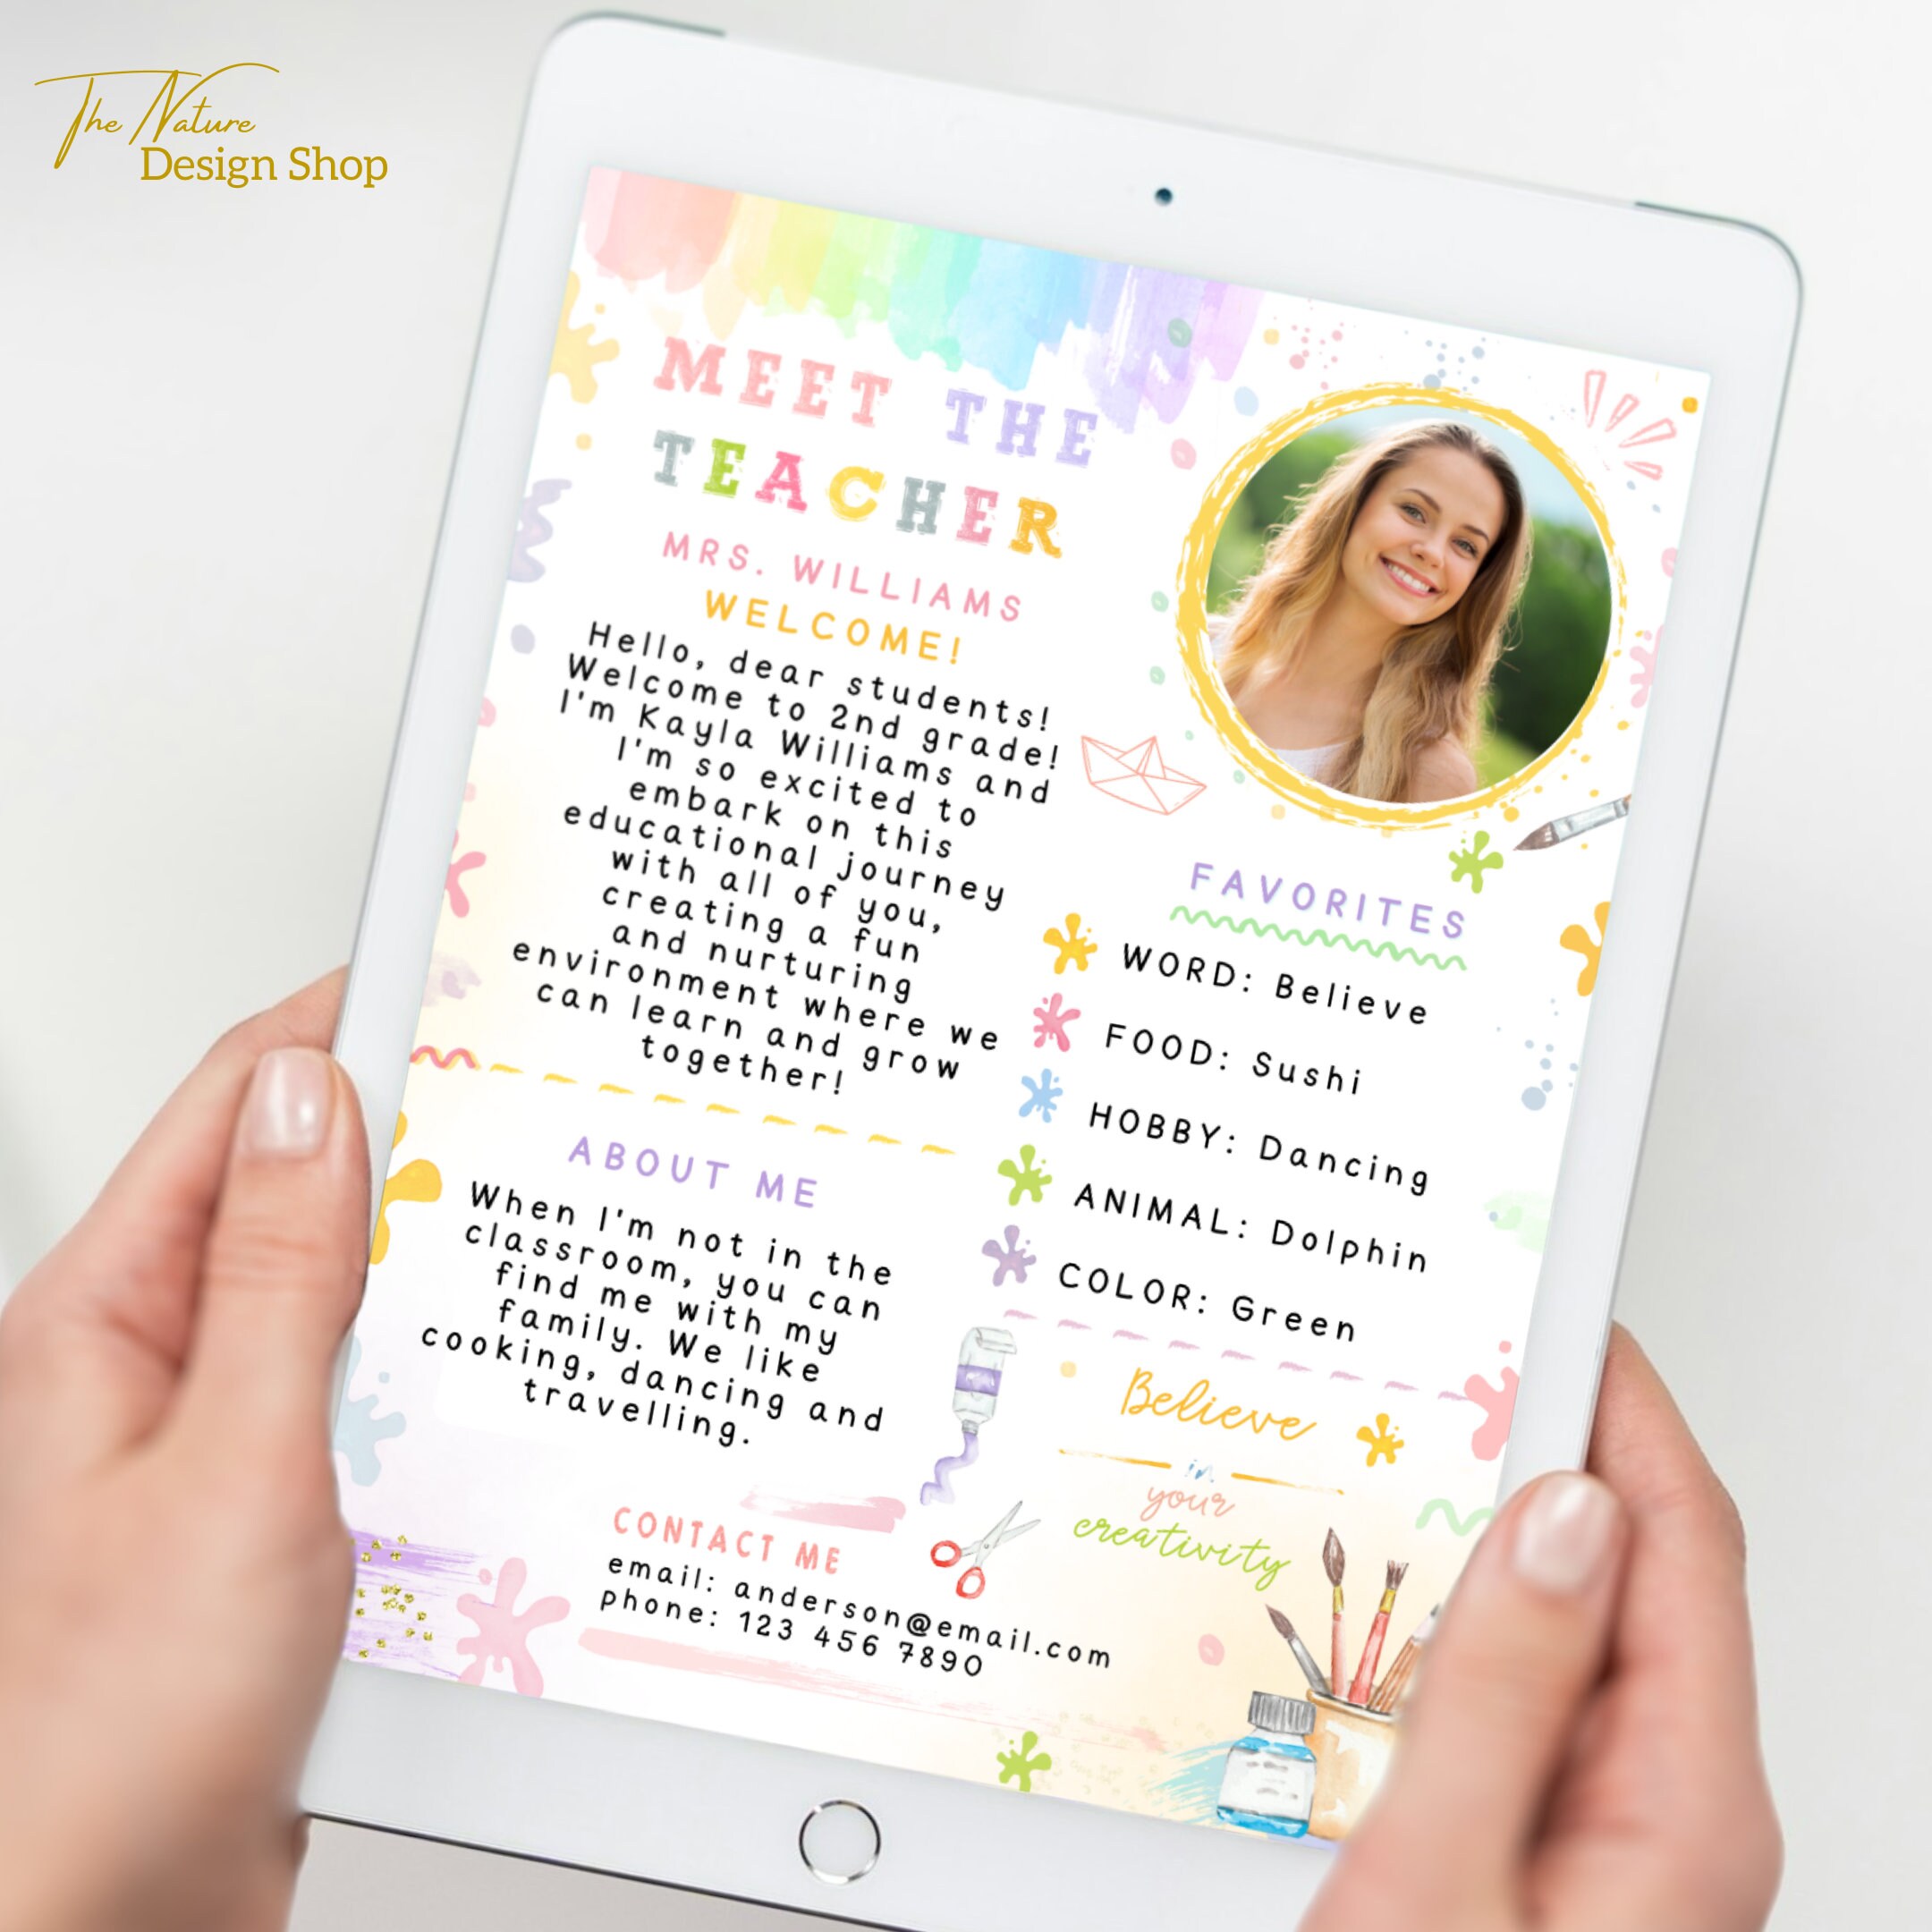 The Nature
Design Shop
MEET THE
TEACHER
MRS. WILLIAMS
WELCOME!
Hello, dear students!
Welcome to 2nd grade!
I'm Kayla Williams and
I'm so excited to
embark on this
educational journey
with all of you,
creating a fun
and nurturing
environment where we
can learn and grow
together!
ABOUT ME
When I'm not in the
classroom, you can
find me with my
family. We like
cooking, dancing and
travelling.
FAVORITES
WORD: Believe
FOOD: Sushi
HOBBY: Dancing
ANIMAL: Dolphin
COLOR: Green
Believe
in
your
creativity
CONTACT ME
email: anderson@email.com
phone: 123 456 7890